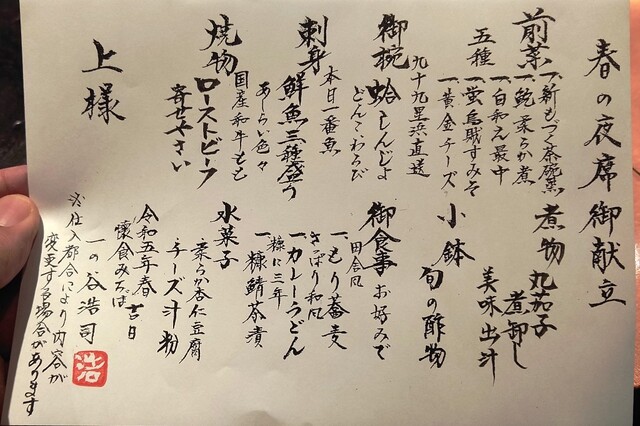 春の夜席 御献立
前菜
五種
一、新もづく茶碗蒸
一、鮑柔らか煮
一、白和え最中
一、蛍烏賊すみそ
一、黄金チーズ
御椀
九十九里浜直送
蛤しんじょ
どんこわらび
刺身
本日一番魚
鮮魚三種盛り
あしらい色々
焼物
国産和牛もも
ローストビーフ
寄せやさい
煮物
丸茄子
煮卸し
美味出汁
小鉢
旬の酢物
御食事 お好みで
田舎風
一、もり蕎麦
さっぱり和風
一、カレーうどん
糠に三年
一、糠鯖茶漬
水菓子
柔らか杏仁豆腐
チーズ汁粉
令和五年春 吉日
懐食みちば
一の谷浩司
浩
※仕入都合により内容が
変更する場合があります
上様